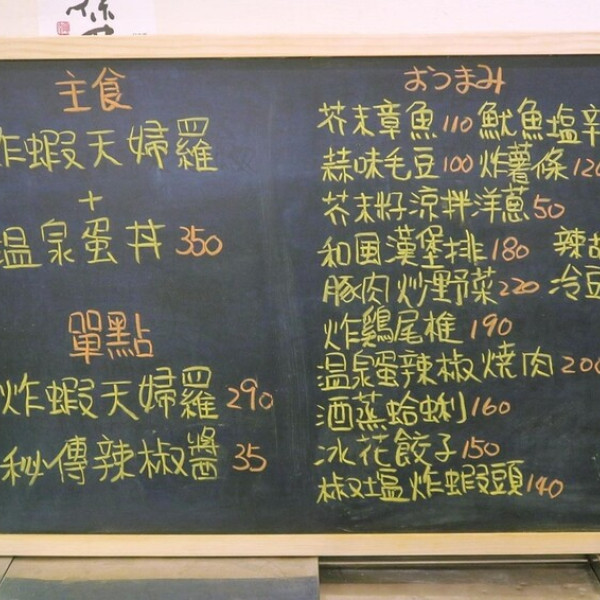 主食
炸蝦天婦羅
+
温泉蛋丼 350
單點
炸蝦天婦羅 290
秘傳辣椒醬 35
おつまみ
芥末章魚 110 魷魚塩辛
蒜味毛豆 100 炸薯條 120
芥末籽涼拌洋蔥 50
和風漢堡排 180 辣
豚肉炒野菜 220 冷豆
炸雞尾椎 190
温泉蛋辣椒燒肉 200
酒蒸蛤蜊 160
冰花餃子 150
椒塩炸蝦頭 140